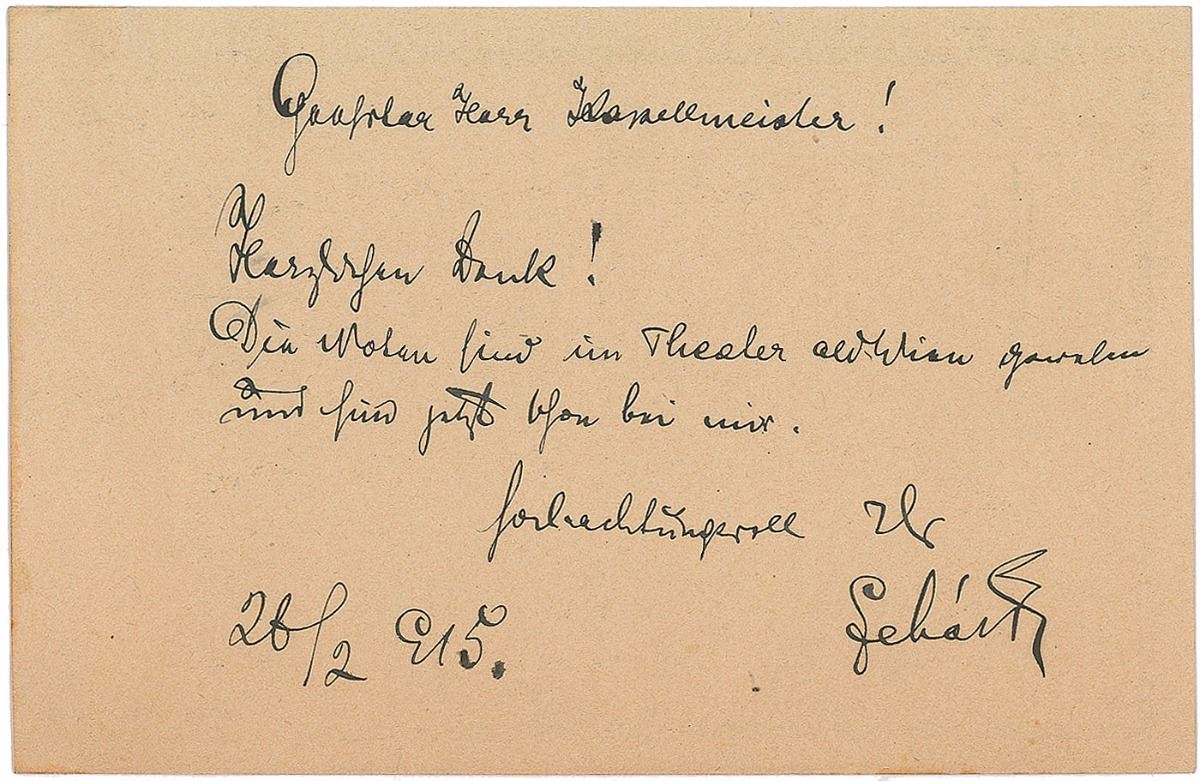 Geehrter Herr Kapellmeister!
Herzlichen Dank!
Die Noten sind im Theater adWien gewesen
und sind jetzt schon bei mir.
Hochachtungsvoll Ihr
26/2 915. Lehár